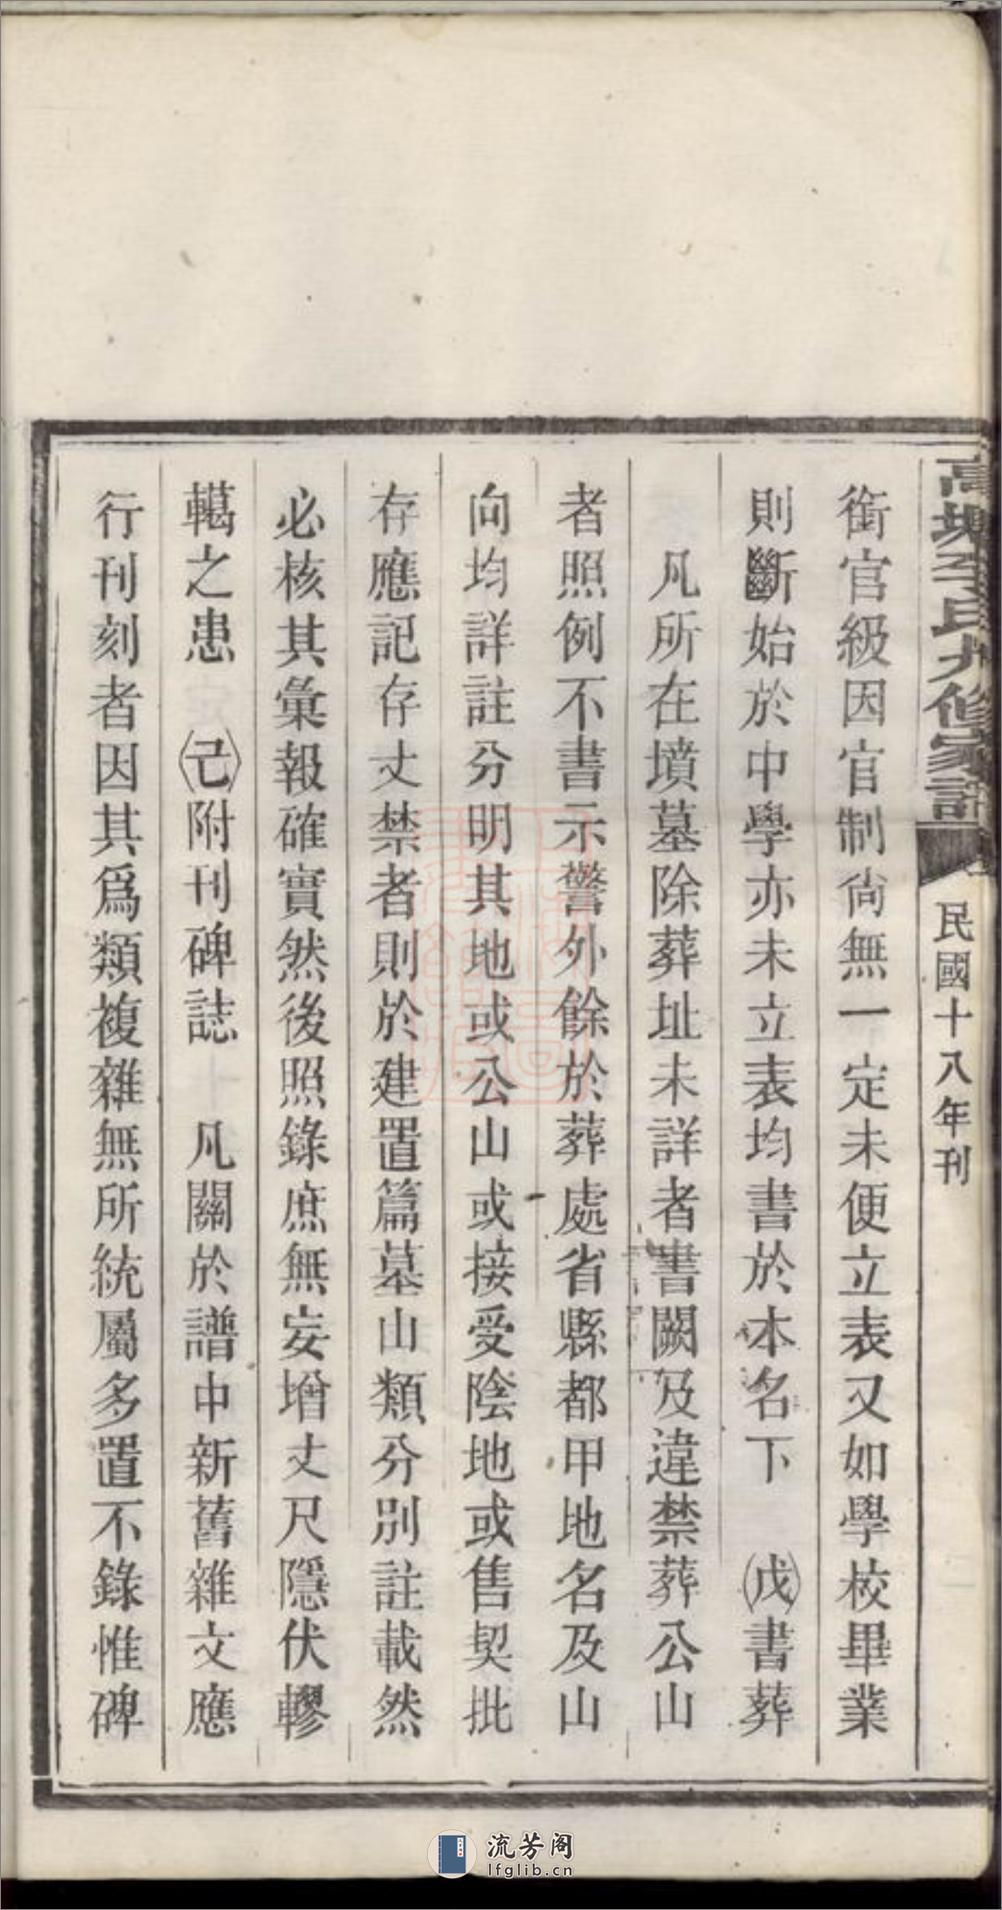 高塘李氏九修家譜
民國十八年刊
銜官級因官制尙無一定未便立表又如學校畢業
則斷始於中學亦未立表均書於本名下 (戊)書葬
凡所在墳墓除葬址未詳者書闕及違禁葬公山
者照例不書示警外餘於葬處省縣都甲地名及山
向均詳註分明其地或公山或接受陰地或售契批
存應記存丈禁者則於建置篇墓山類分別註載然
必核其彙報確實然後照錄庶無妄增丈尺隱伏轇
轕之患 (己)附刊碑誌 凡關於譜中新舊雜文應
行刊刻者因其爲類複雜無所統屬多置不錄惟碑
流芳阁
lfglib.cn